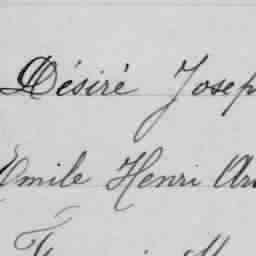 Désiré Josep
Emile Henri Ar